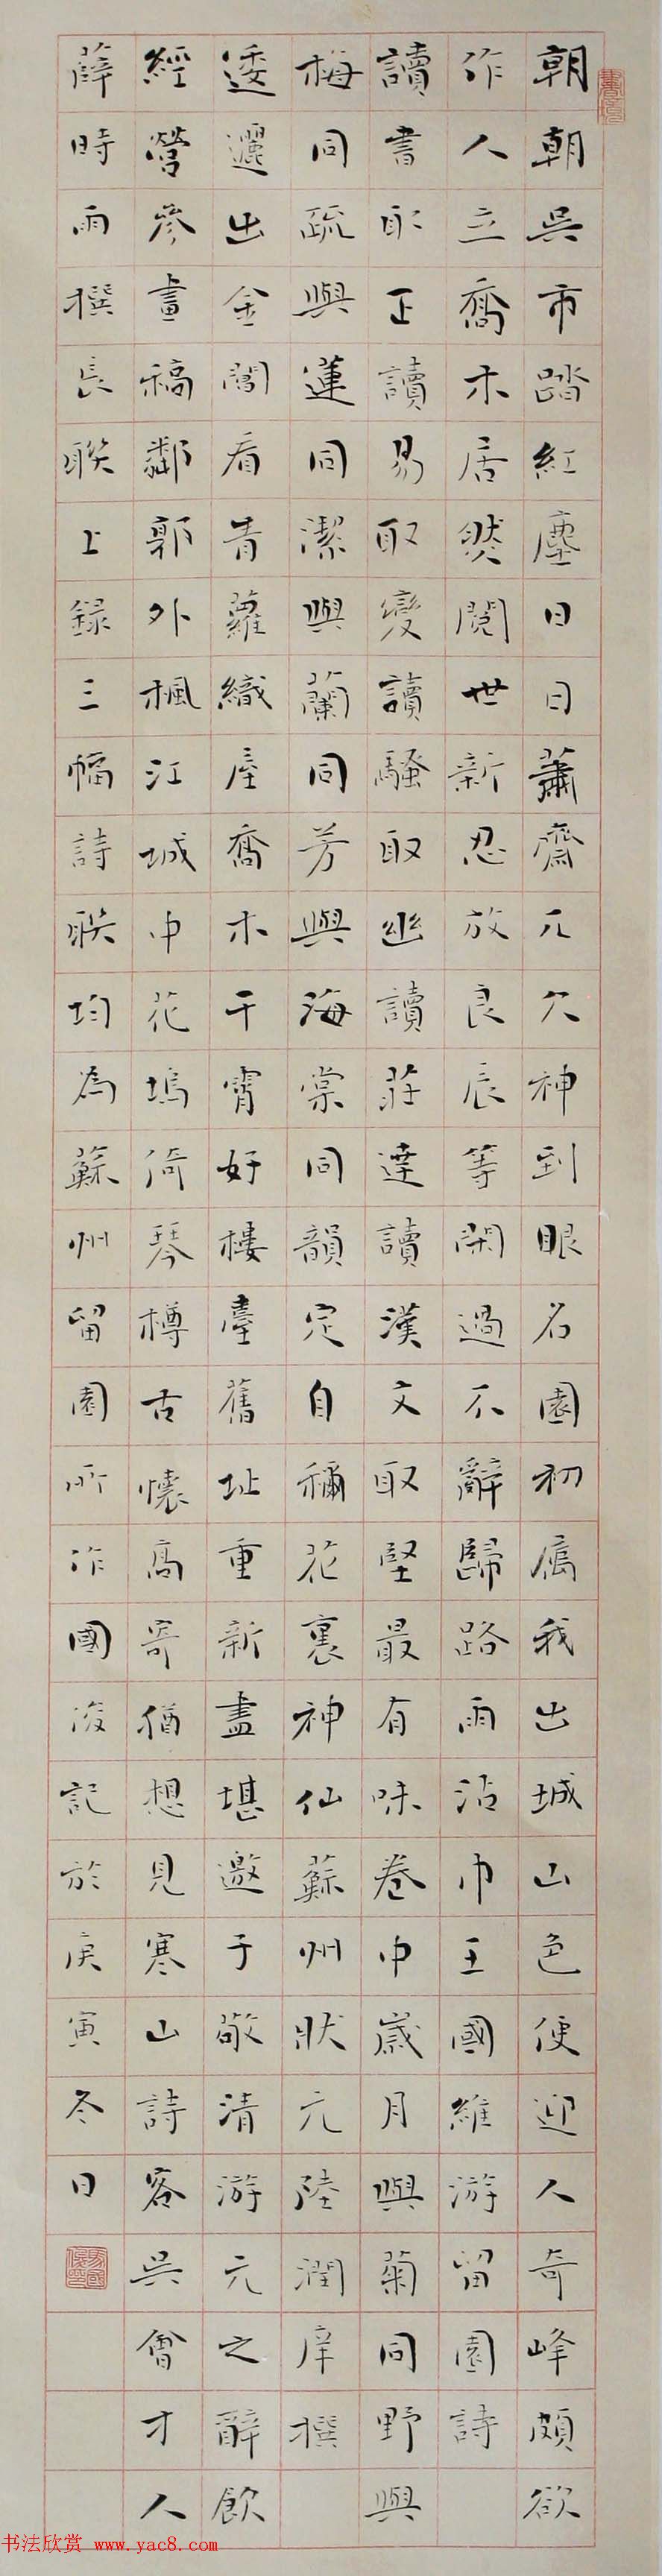 朝朝吳市踏紅塵日日蕭齋兀欠神到眼名園初属我出城山色便迎人奇峰頗欲
作人立喬木居然閱世新忍放良辰等閑過不辭歸路雨沾巾王國維游留園詩
讀書取正讀易取變讀騷取幽讀莊達讀漢文取堅最有味卷中歲月與菊同野與
梅同疏與蓮同潔與蘭同芳與海棠同韻定自稱花裏神仙蘇州狀元陸潤庠撰
逶邐出金閶看青蘿織屋喬木干霄好樓臺舊址重新盡堪邀子敬清游元之醉飲
經營參畫稿鄰郭外楓江城中花塢倚琴樽古懷高寄猶想見寒山詩客吳會才人
薛時雨撰長聯上錄三幅詩聯均為蘇州留園所作國俊記於庚寅冬日
书法欣赏 www.yac8.com